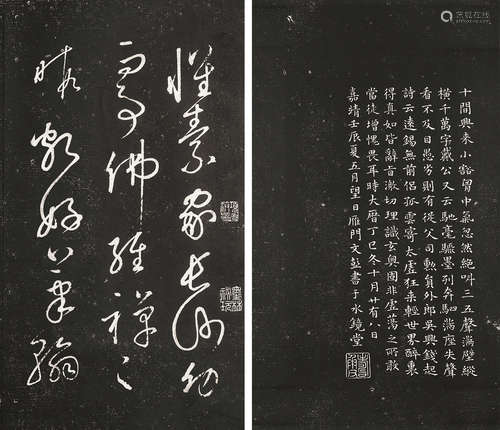 懷素家長沙幼
而事佛經禪之
暇頗好筆翰
十間興來小豁胷中氣忽然絕叫三五聲滿壁縱
橫千萬字戴公又云馳毫驟墨列奔駟滿座失聲
看不及目愚劣則有從父司勳員外郎吳興錢起
詩云遠錫無前侶孤雲寄太虛狂來輕世界醉裏
得真如皆辭旨激切理識玄奧固非虛蕩之所敢
當徒增愧畏耳時大曆丁巳冬十月廿有八日
嘉靖壬辰夏五月望日雁門文彭書于水鏡堂